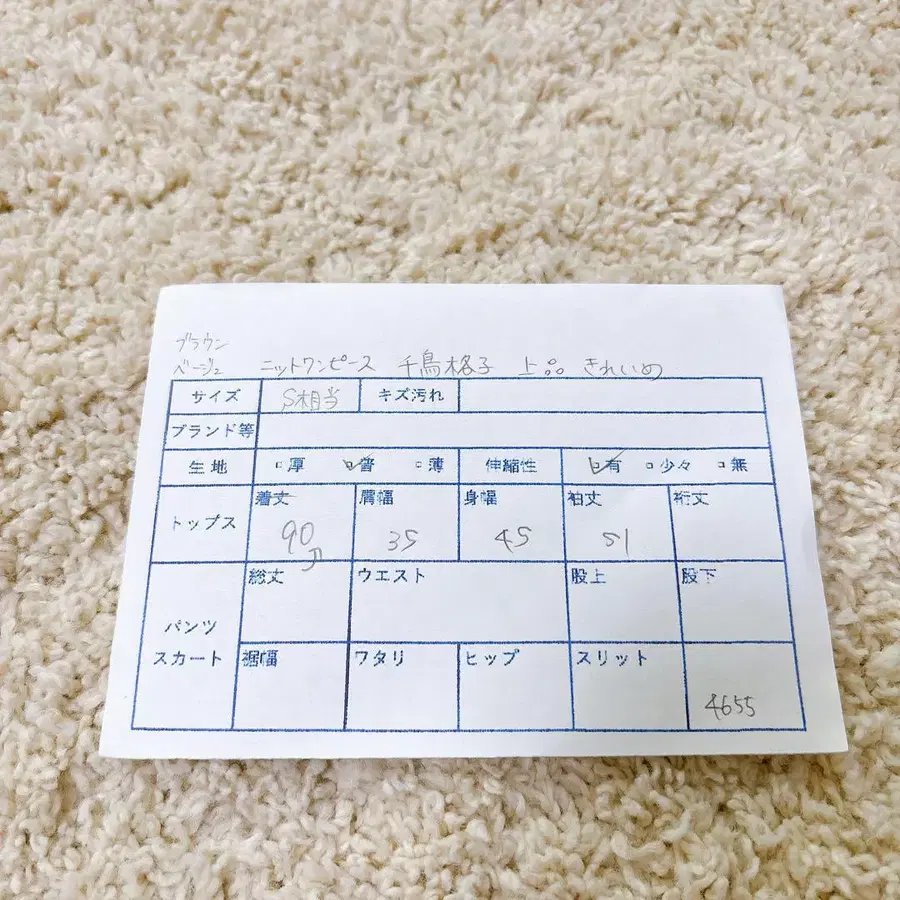 ブラウン
ベージュ ニットワンピース 千鳥格子 上品 きれいめ
サイズ S相当 キズ汚れ
ブランド等
生地 □厚 □普 □薄 伸縮性 □有 □少々 □無
トップス 着丈 肩幅 身幅 袖丈 裄丈
90 35 45 51
総丈 ウエスト 股上 股下
パンツ
スカート 裾幅 ワタリ ヒップ スリット
4655